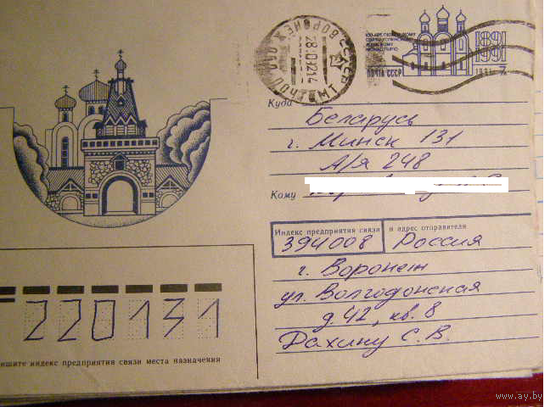 ВОРОНЕЖ
1891
1991
ПОЧТА СССР
Куда Беларусь
г. Минск 131
А/я 248
Кому
Индекс предприятия связи и адрес отправителя
394008 Россия
г. Воронеж
ул. Волгодонская
д. 42, кв. 8
Фахину С. В.
220131
пишите индекс предприятия связи места назначения
www.ay.by